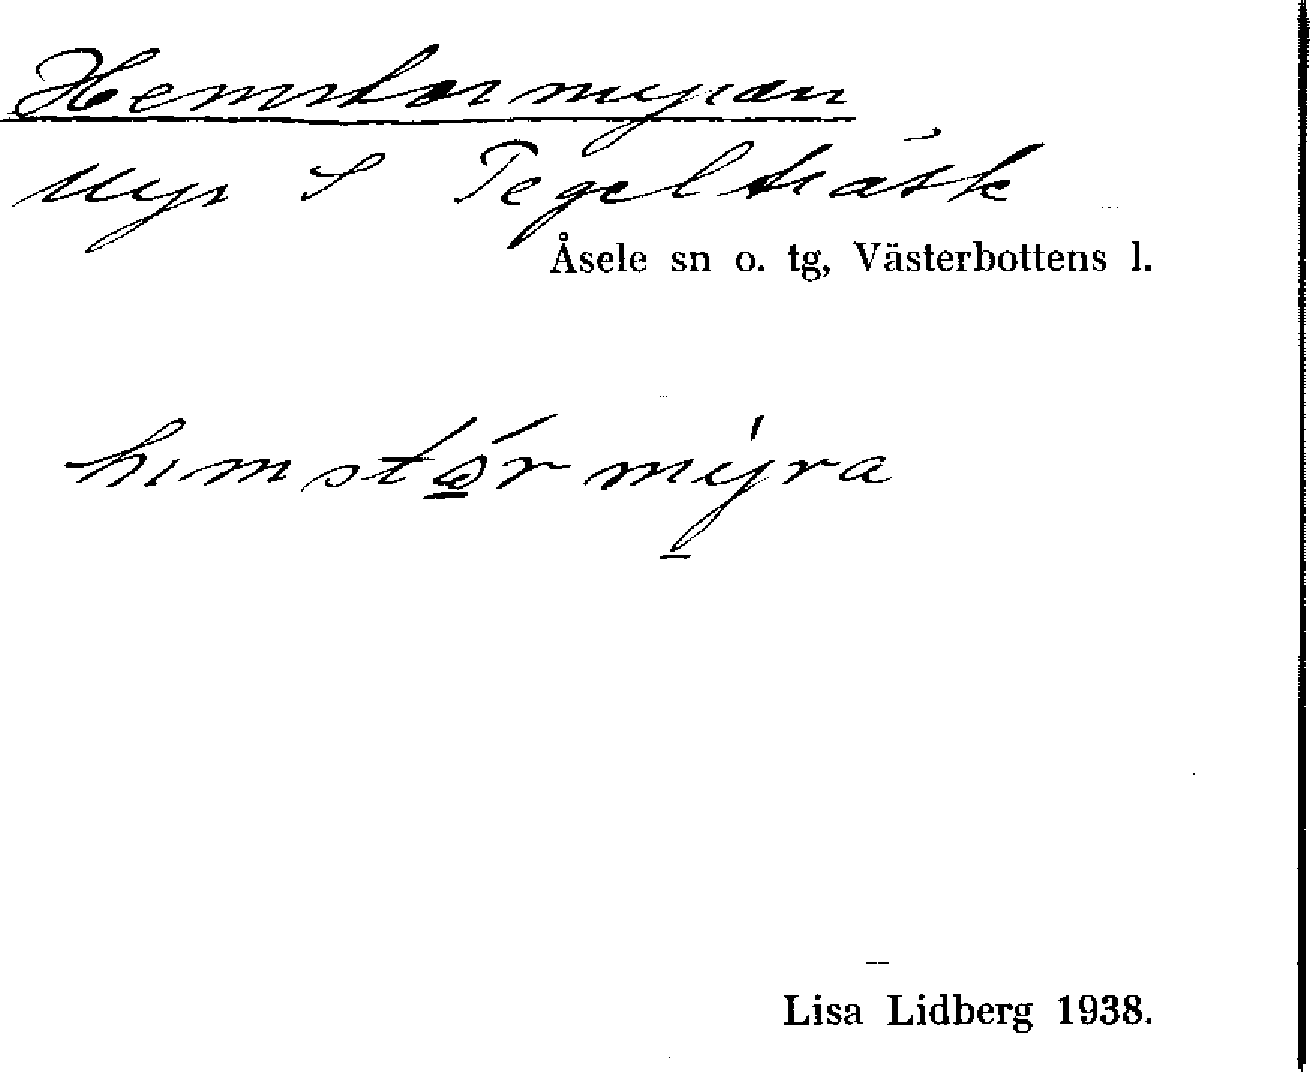 Hemstormyran
Myr S Tegelträsk
Åsele sn o. tg, Västerbottens l.
hemstǫ́rmy̱̍ra
Lisa Lidberg 1938.